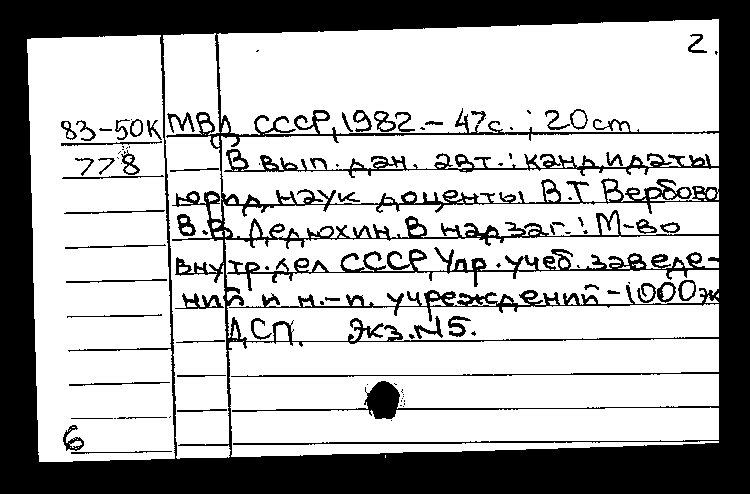 2.
83-50К МВД СССР, 1982.- 47с. ; 20 cm.
778 В вып. дан. авт.: кандидаты
юрид. наук доценты В.Т. Вербово
В.В. Дедюхин. В надзаг.: М-во
внутр. дел СССР, Упр. учеб. заведе-
ний и н.-п. учреждений -1000 эк
ДСП. Экз. №5.
6